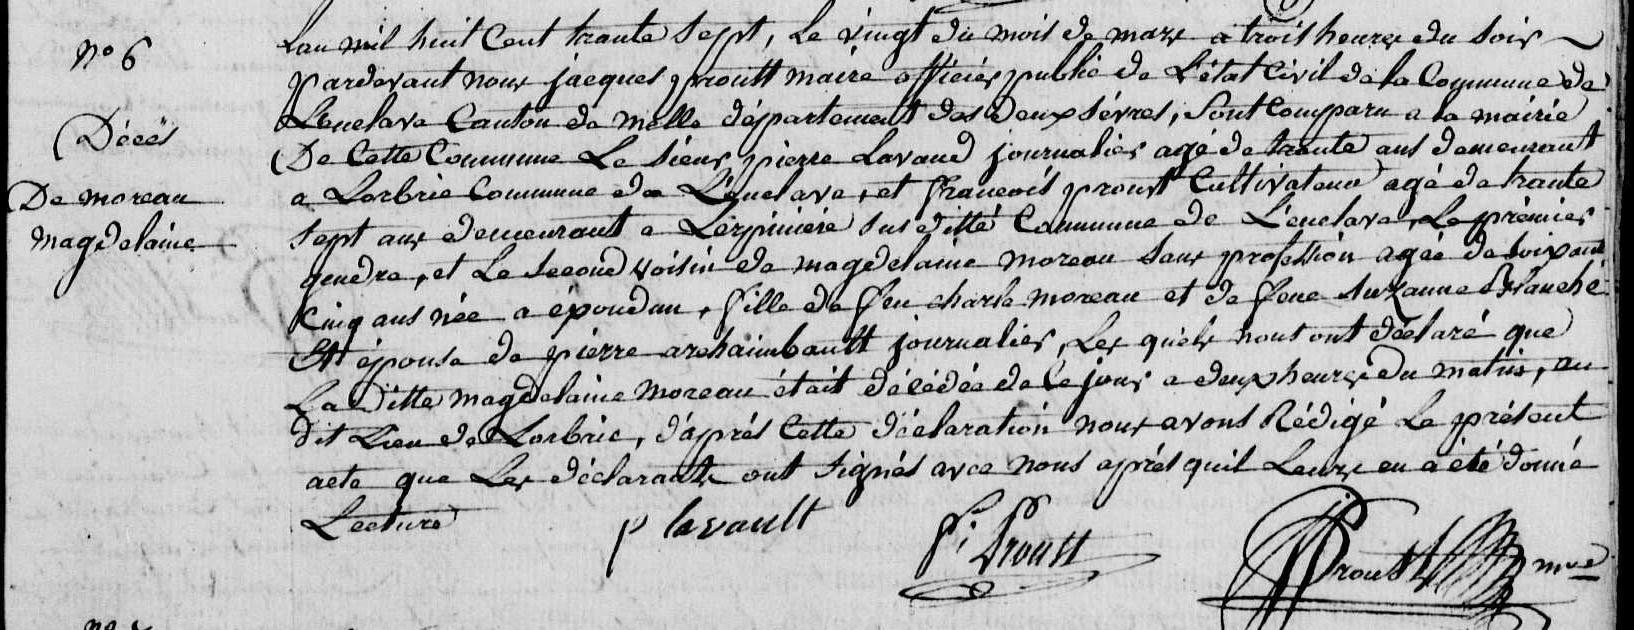 N° 6
Décès
De moreau
magdelaine
Lan mil huit Cent trante sept, Le vingt du mois de mars a trois heures du soir
pardevant nous jacques proustt maire officier public de L'état Civil de la Commune de
L'enclave Canton de melle département des deux sévres, sont Comparu a la mairie
De Cette Commune Le sieur pierre Lavaud journalier agé de trante ans demeurant
a Lorbrie Commune de L'enclave, et francois proust Cultivateur agé de trante
sept ans demeurant a Lerpiniére sus ditte Commune de L'enclave, Le prémier
gendre, et Le second voisin de magdelaine moreau sans profession agée de soixante
Cinq ans née a époudan, fille de feu charle moreau et de feue suzanne Blanché
Et épouse de pierre archaimbault journalier, Les quels nous ont déclaré que
La ditte magdelaine moreau était décédée de Ce jour a deux heures Du matin, au
dit Lieu de Lorbrie, d'aprés Cette déclaration nous avons Rédigé Le présent
acte que Les déclarants ont signés avec nous aprés quil Leurs en a été donné
Lecture
p lavault
f. Proust
JProustt mre